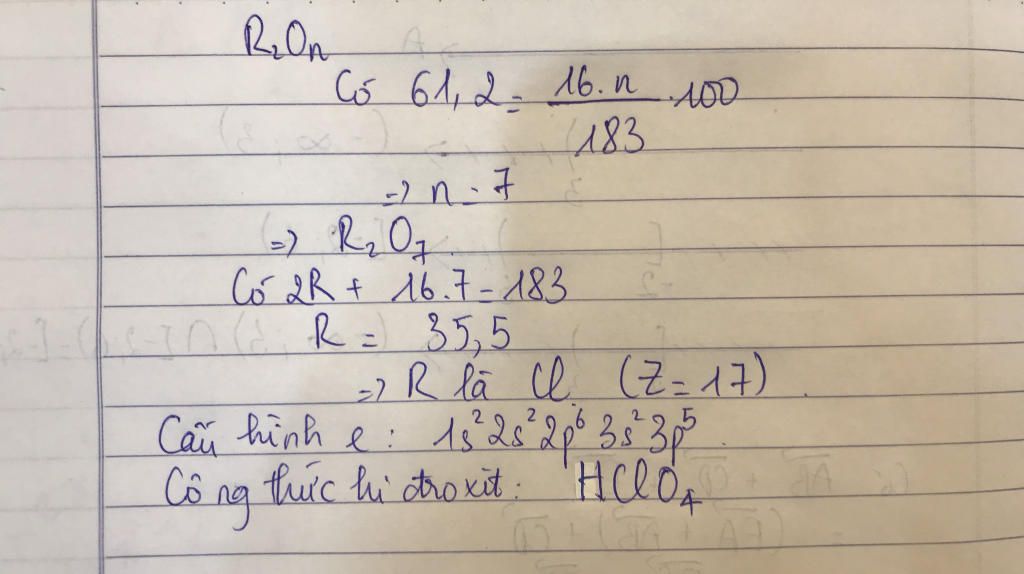 R₂Oₙ
Có 61,2 = 16.n / 183 .100
=> n = 7
=> R₂O₇
Có 2R + 16.7 = 183
R = 35,5
=> R là Cl (Z = 17)
Cấu hình e: 1s²2s²2p⁶3s²3p⁵
Công thức hiđroxit: HClO₄